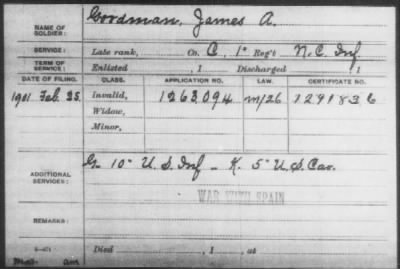 NAME OF SOLDIER: Goodman, James A.
SERVICE: Late rank, Co. C, 1" Reg't N.C. Inf
TERM OF SERVICE: Enlisted , 1 Discharged , 1
DATE OF FILING. CLASS. APPLICATION NO. LAW. CERTIFICATE NO.
1901 Feb. 25. Invalid, 1263,094 m/26 1291836
Widow,
Minor,
ADDITIONAL SERVICES: G. 10" U.S. Inf - K. 5" U.S. Cav.
WAR WITH SPAIN
REMARKS:
Died , 1 , at